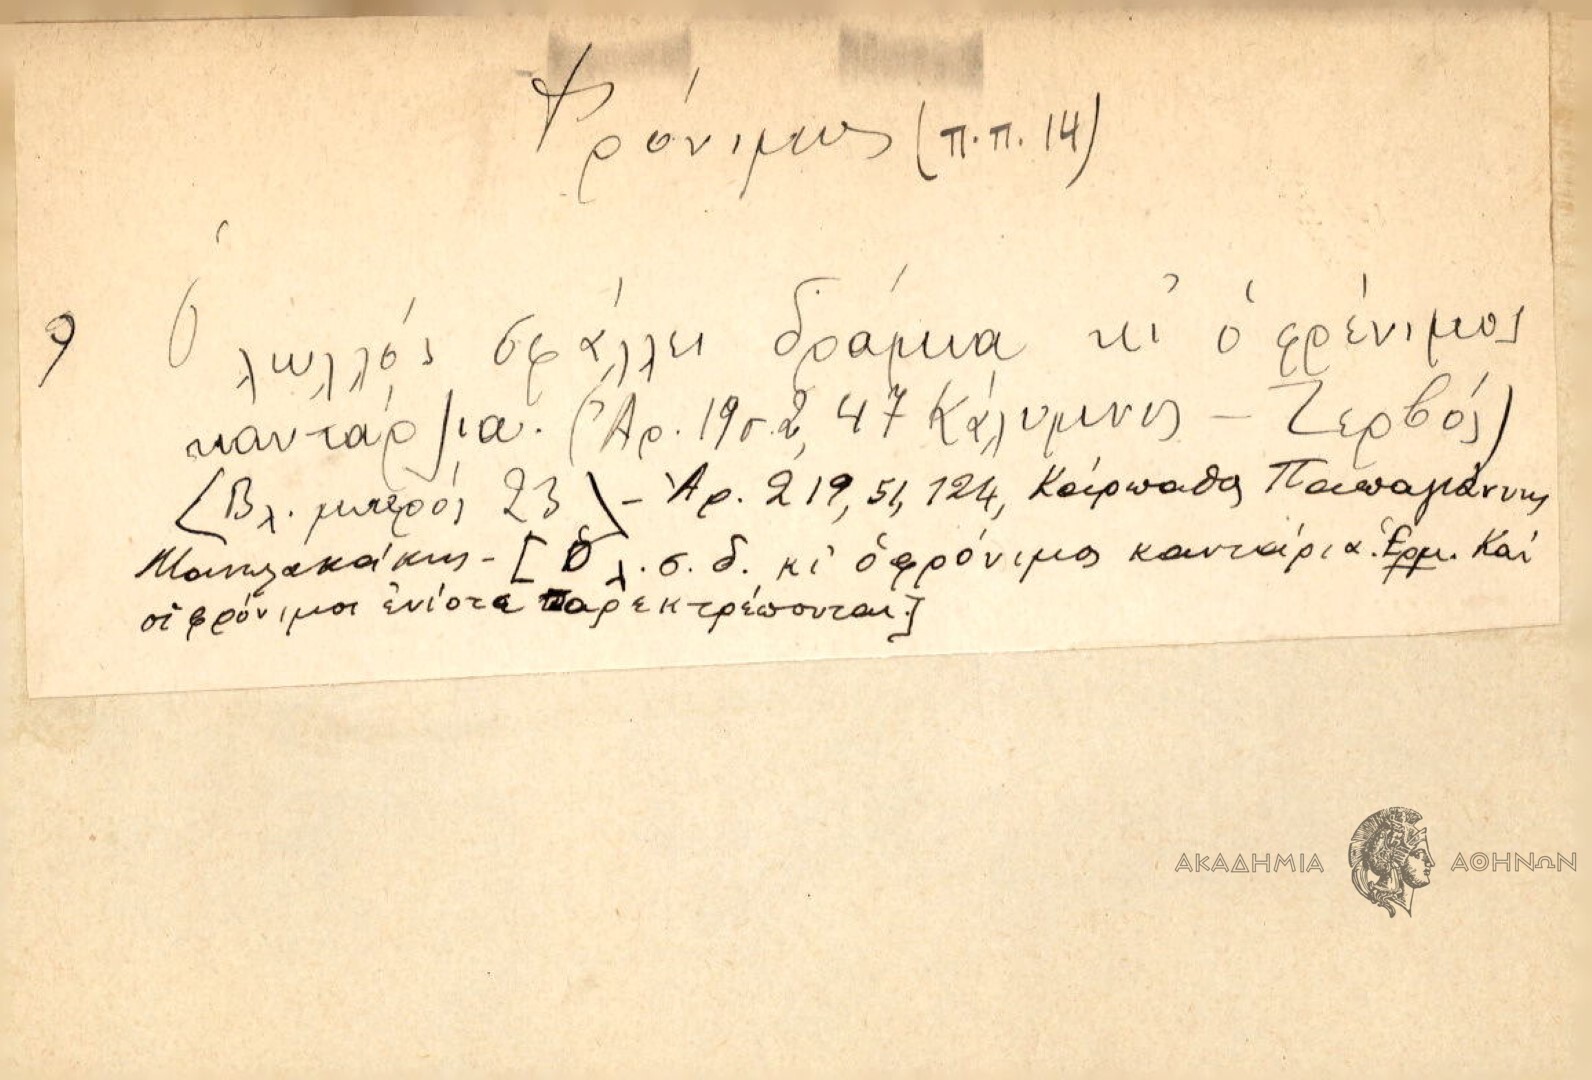 Φρόνιμος (π.π. 14)
9 Ὁ λωλλός σφάλλει δράμια κι' ὁ φρένιμος
καντάρια. (Ἀρ. 19 σ. 2, 47 Κάλυμνος – Ζερβός)
[Βλ. μικρός 23] – Ἀρ. 219, 51, 124, Κάρπαθος Παπαγιάννης
Μανωλακάκης – [Ὁ λ. σ. δ. κι' ὁ φρόνιμος καντάρια. Ἑρμ. Καί
οἱ φρόνιμοι ἐνίοτε παρεκτρέπονται.]
ΑΚΑΔΗΜΙΑ ΑΘΗΝΩΝ